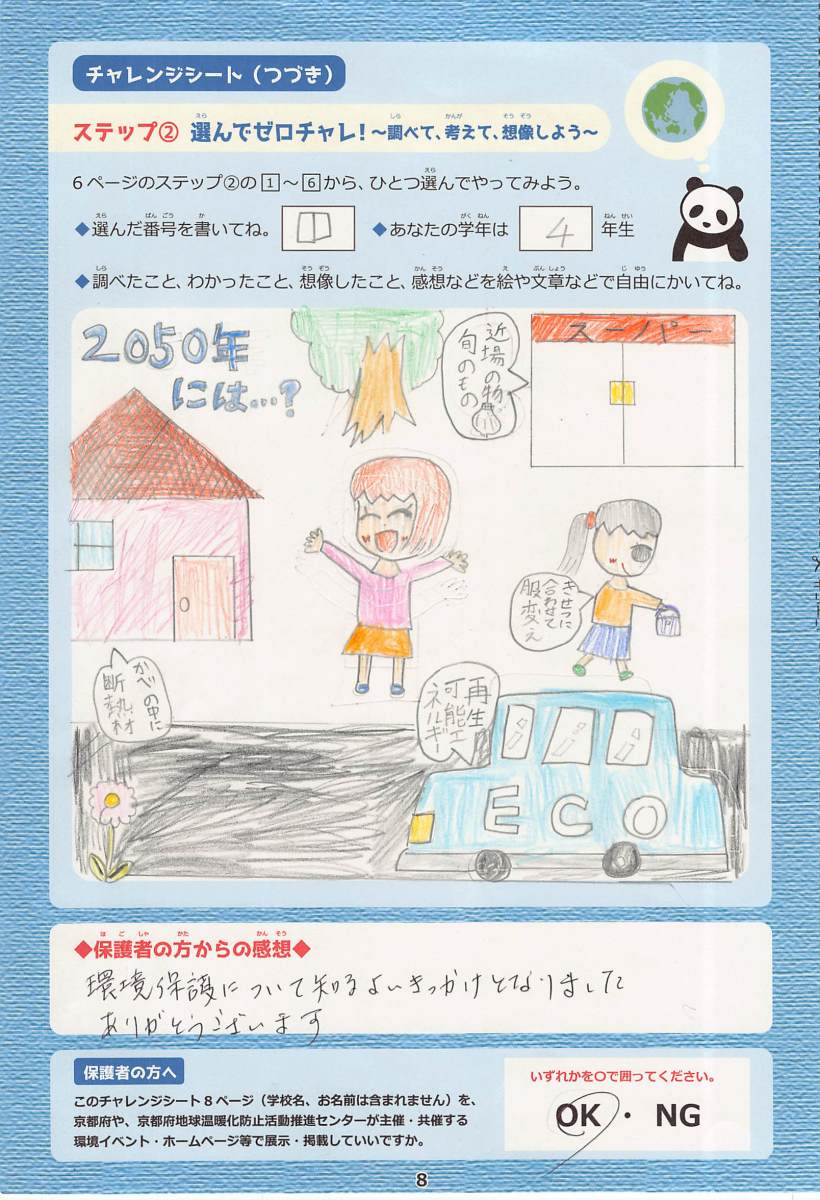 チャレンジシート（つづき）
ステップ② 選んでゼロチャレ！～調べて、考えて、想像しよう～
6ページのステップ②の1～6から、ひとつ選んでやってみよう。
◆選んだ番号を書いてね。 ◆あなたの学年は 4 年生
◆調べたこと、わかったこと、想像したこと、感想などを絵や文章などで自由にかいてね。
2050年
には…?
近場の物
旬のもの
スーパー
きせつに
合わせて
服変え
かべの中に
断熱材
再生
可能エ
ネルギー
ECO
◆保護者の方からの感想◆
環境保護について知るよいきっかけとなりました
ありがとうございます
保護者の方へ
このチャレンジシート8ページ（学校名、お名前は含まれません）を、
京都府や、京都府地球温暖化防止活動推進センターが主催・共催する
環境イベント・ホームページ等で展示・掲載していいですか。
いずれかを〇で囲ってください。
OK・NG
8